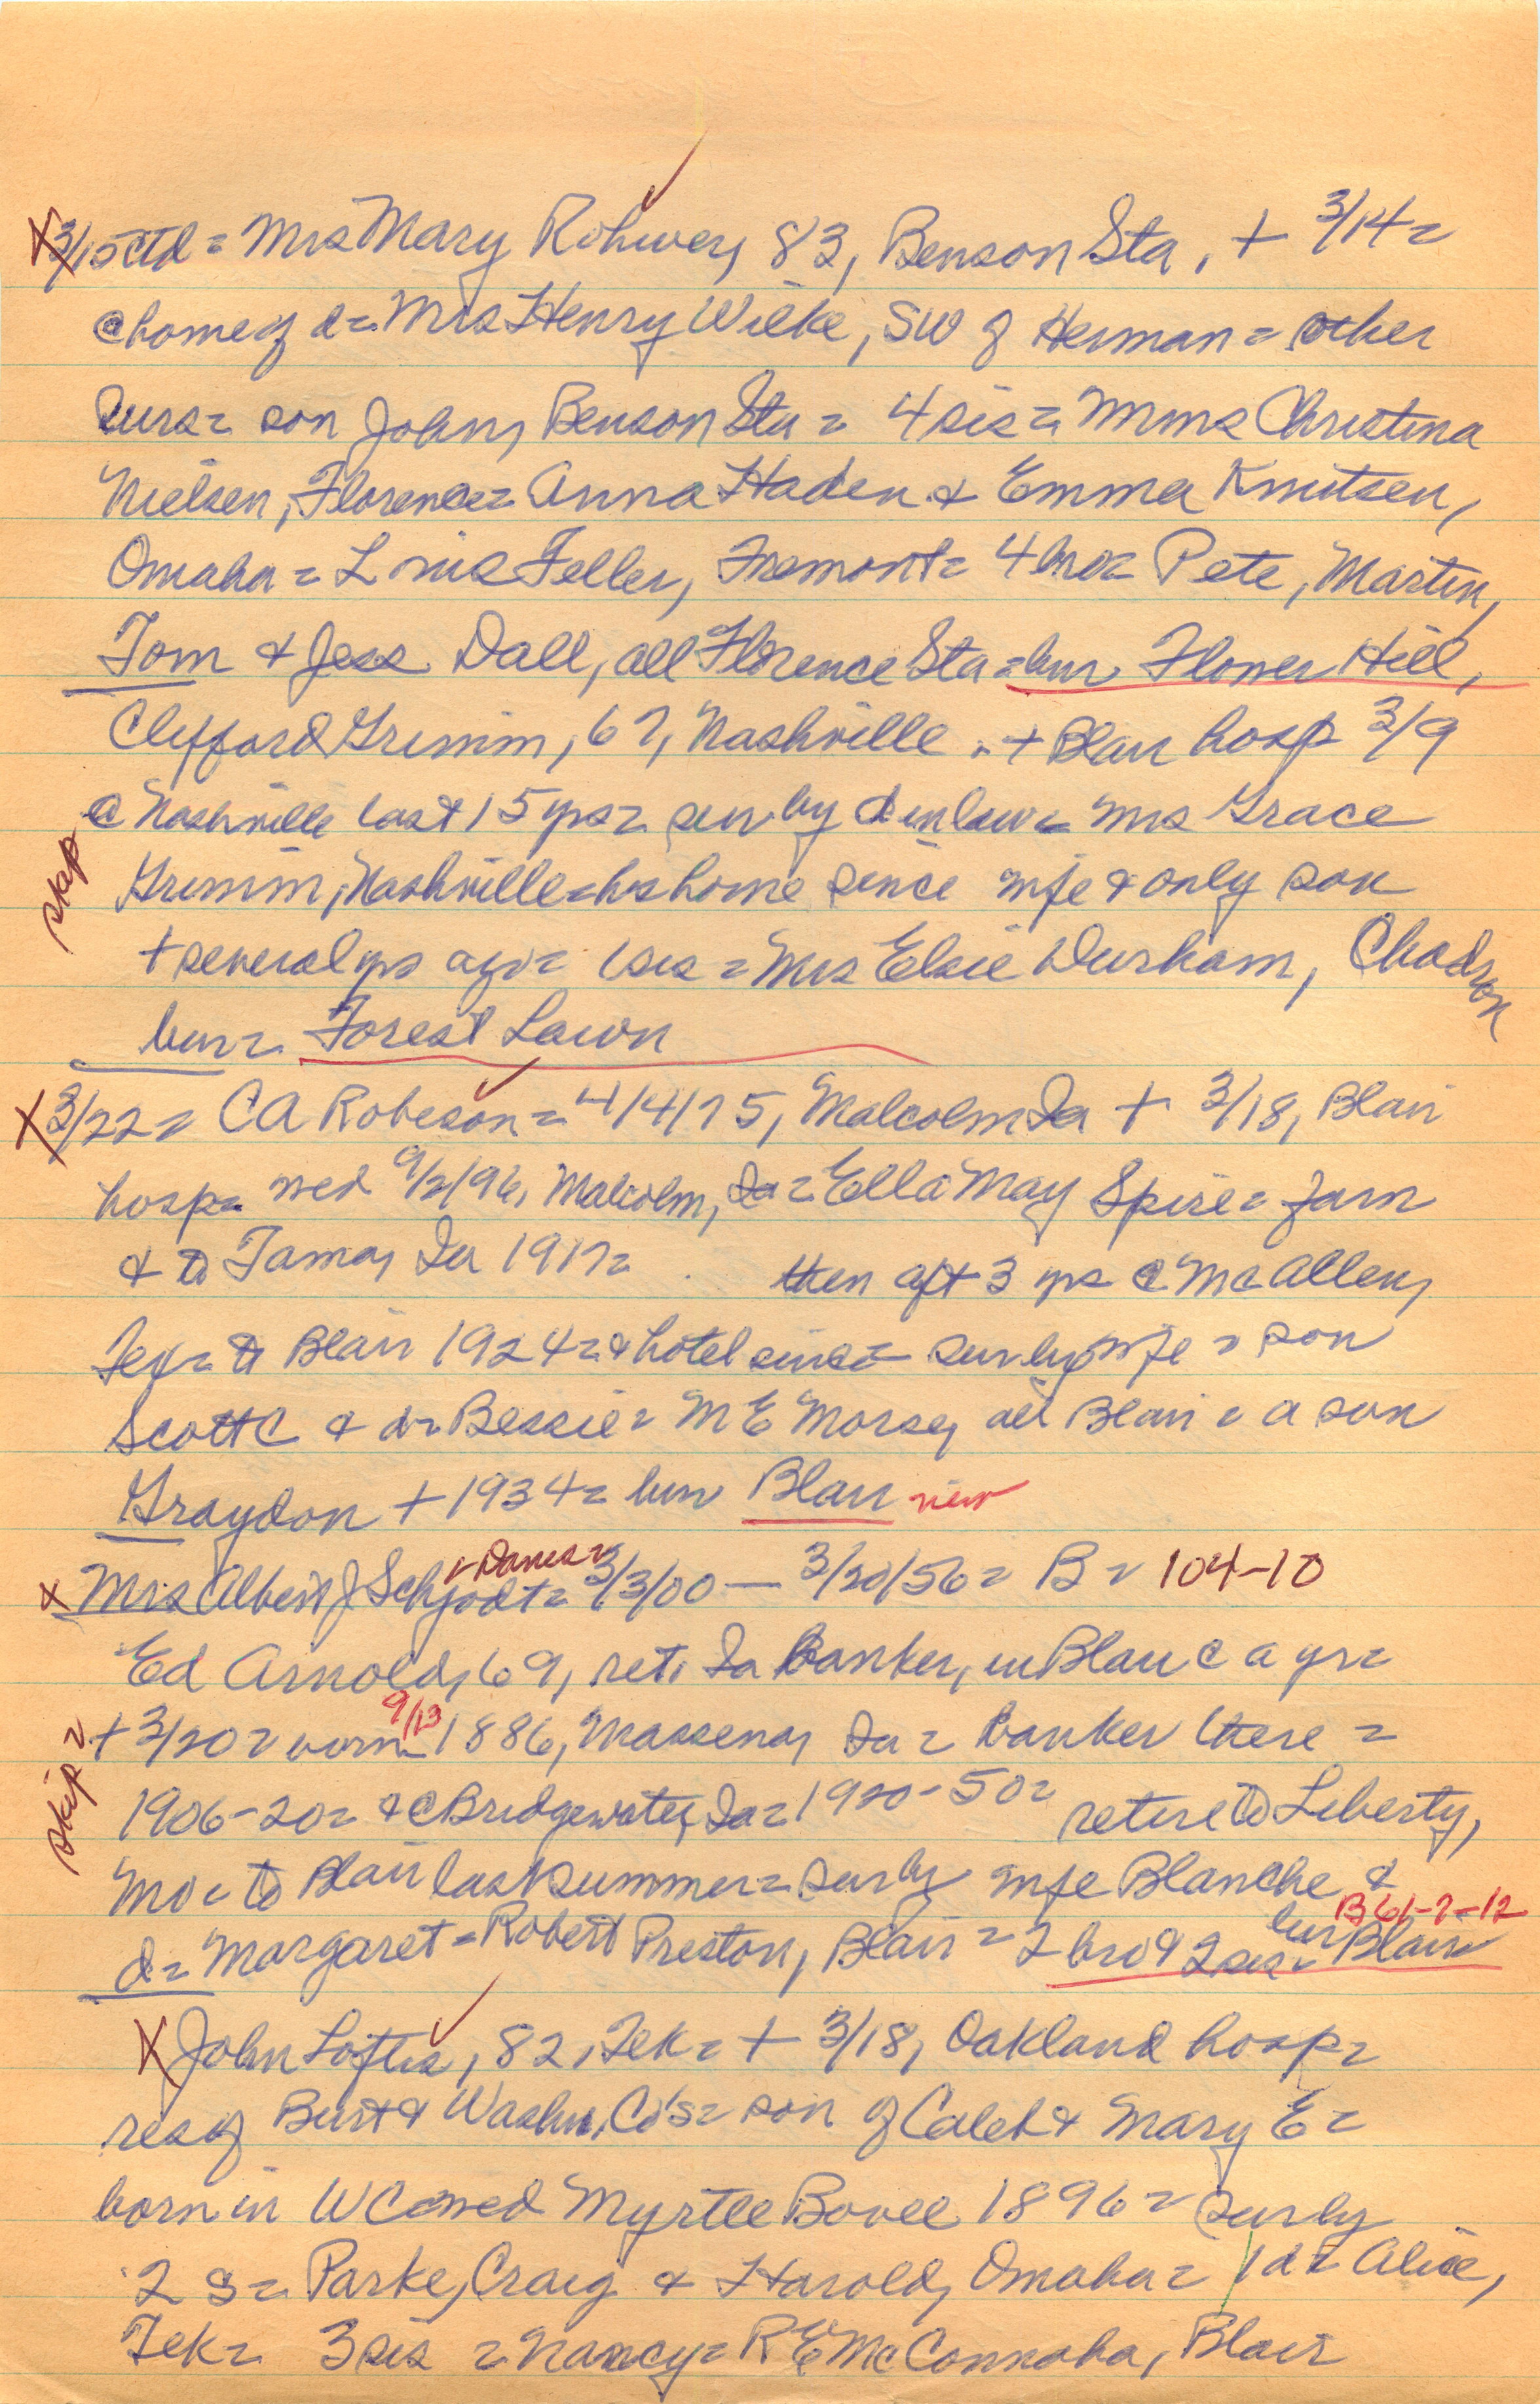 X 3/15 ctd = Mrs Mary Rohwer, 83, Benson Sta, + 3/14 =
@ home of d = Mrs Henry Wilke, SW of Herman = other
surs = son John, Benson Sta = 4 sis = Mms Christina
Nielsen, Florence = Anna Haden & Emma Knutsen,
Omaha = Louis Feller, Fremont = 4 bro = Pete, Martin,
Tom & Jess Dall, all Florence Sta = bur Flower Hill,
Clifford Grimm, 67, Nashville. + Blair hosp 3/9
@ Nashville last 15 yrs = sur by d in law = Mrs Grace
skip
Grimm, Nashville = his home since wife & only son
+ several yrs ago = 1 sis = Mrs Elsie Durham, Chadron
bur = Forest Lawn
X 3/22 = CA Robeson = 4/4/75, Malcolm Ia + 3/18, Blair
hosp = wed 9/2/96, Malcolm, Ia = Ella May Spire = farm
& to Tama, Ia 1917 = then aft 3 yrs @ McAllen,
Tex = to Blair 1924 = & hotel since = sur by wife = son
Scott C & d = Bessie = M E Morse, all Blair = a son
Graydon + 1934 = bur Blair new
X Mrs Albert J Schjodt = ✓ Dames ✓ 3/3/00 — 3/20/56 = B = 104-10
Ed Arnold, 69, ret. Ia banker, in Blair c a yr =
+ 3/20 = born 9/13 1886, Massena, Ia = banker there =
skip =
1906-20 = & @ Bridgewater, Ia = 1920-50 = retire to Liberty,
Mo = to Blair last summer = sur by wife Blanche &
d = Margaret = Robert Preston, Blair = 2 bro & 2 sis = bur Blair B 61-2-12
X John Loftis, 82, Tek = + 3/18, Oakland hosp =
res of Burt & Washn, Co's = son of Caleb & Mary E =
born in WC = wed Myrtle Bovee 1896 = sur by
2 s = Parke, Craig & Harold, Omaha = 1 d = Alice,
Tek = 3 sis = Nancy = R E McConnaha, Blair